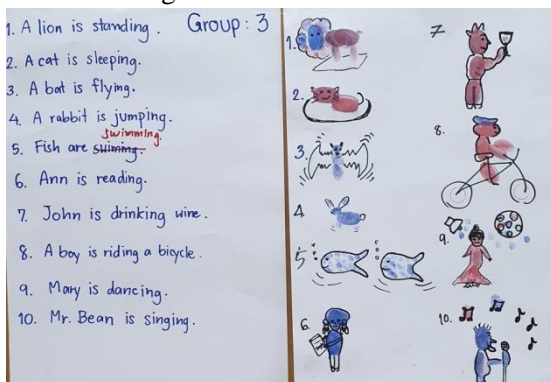 1. A lion is standing. Group : 3
2. A cat is sleeping.
3. A bat is flying.
4. A rabbit is jumping.
swimming.
5. Fish are swiming.
6. Ann is reading.
7. John is drinking wine.
8. A boy is riding a bicycle.
9. Mary is dancing.
10. Mr. Bean is singing.
1.
2.
3.
4
5
6.
7
8.
9.
10.